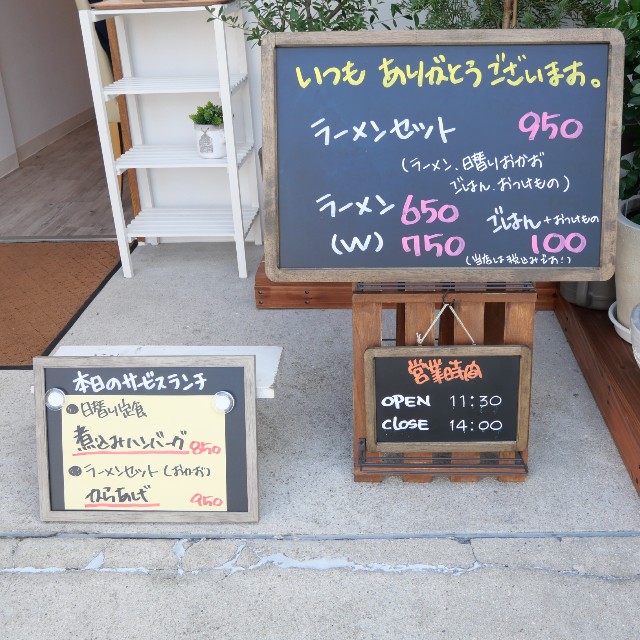 いつも ありがとうございます。
ラーメンセット 950
(ラーメン、日替りおかず
ごはん、おつけもの)
ラーメン 650
(W) 750
ごはん+おつけもの
100
(当店は税込みです!)
営業時間
OPEN 11:30
CLOSE 14:00
本日のサービスランチ
日替り定食
煮込みハンバーグ 850
ラーメンセット(おかず)
からあげ 950